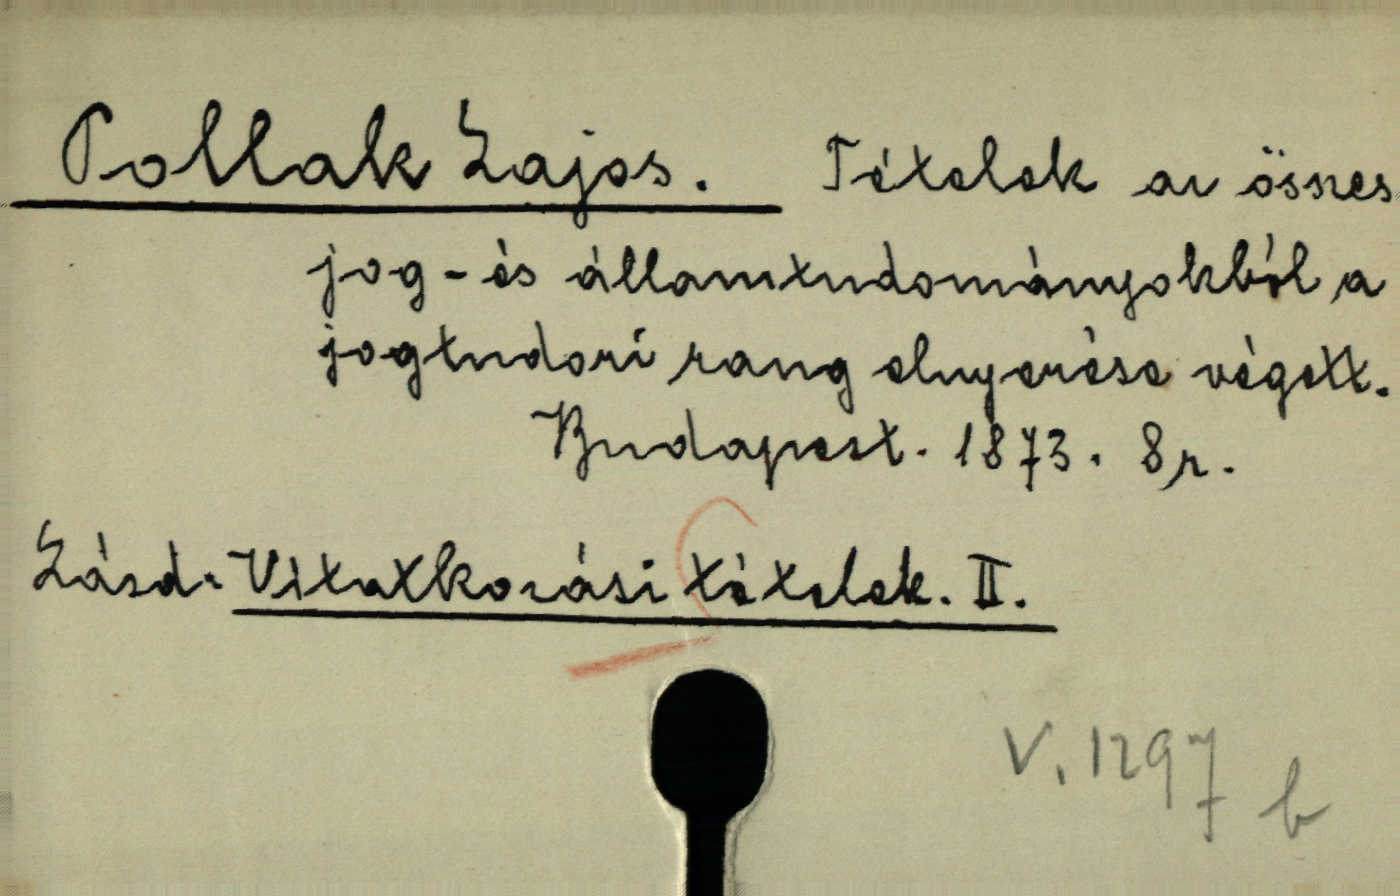 Pollak Lajos. Tételek az összes
jog- és államtudományokból a
jogtudori rang elnyerése végett.
Budapest. 1873. 8r.
Lásd: Vitatkozási tételek. II.
V. 1297
b